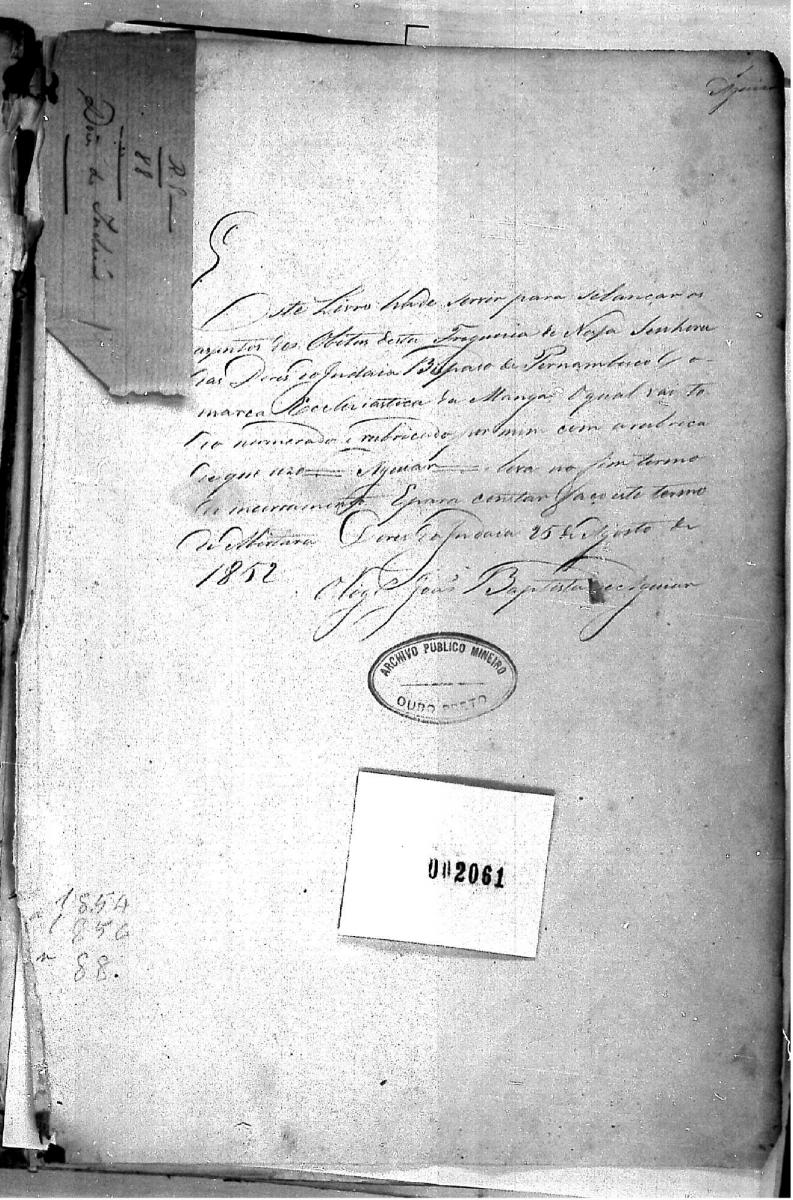 Aguiar
R P
88
Dores do Indaiá
Este Livro hade servir para se lançar os
assentos dos Obitos desta Freguesia de Nossa Senhora
das Dores do Indaia Bispado de Pernambuco Co
marca Ecclesiastica da Manga o qual vai to
do numerado e rubricado por mim com a rubrica
de que uzo = Aguiar = leva no fim termo
de incerramento Epara constar faço este termo
de Abertura Dores do Indaia 25 de Agosto de
1852
O Vigº João Baptista de Aguiar
ARCHIVO PUBLICO MINEIRO
OURO PRETO
002061
1854
1856
88.